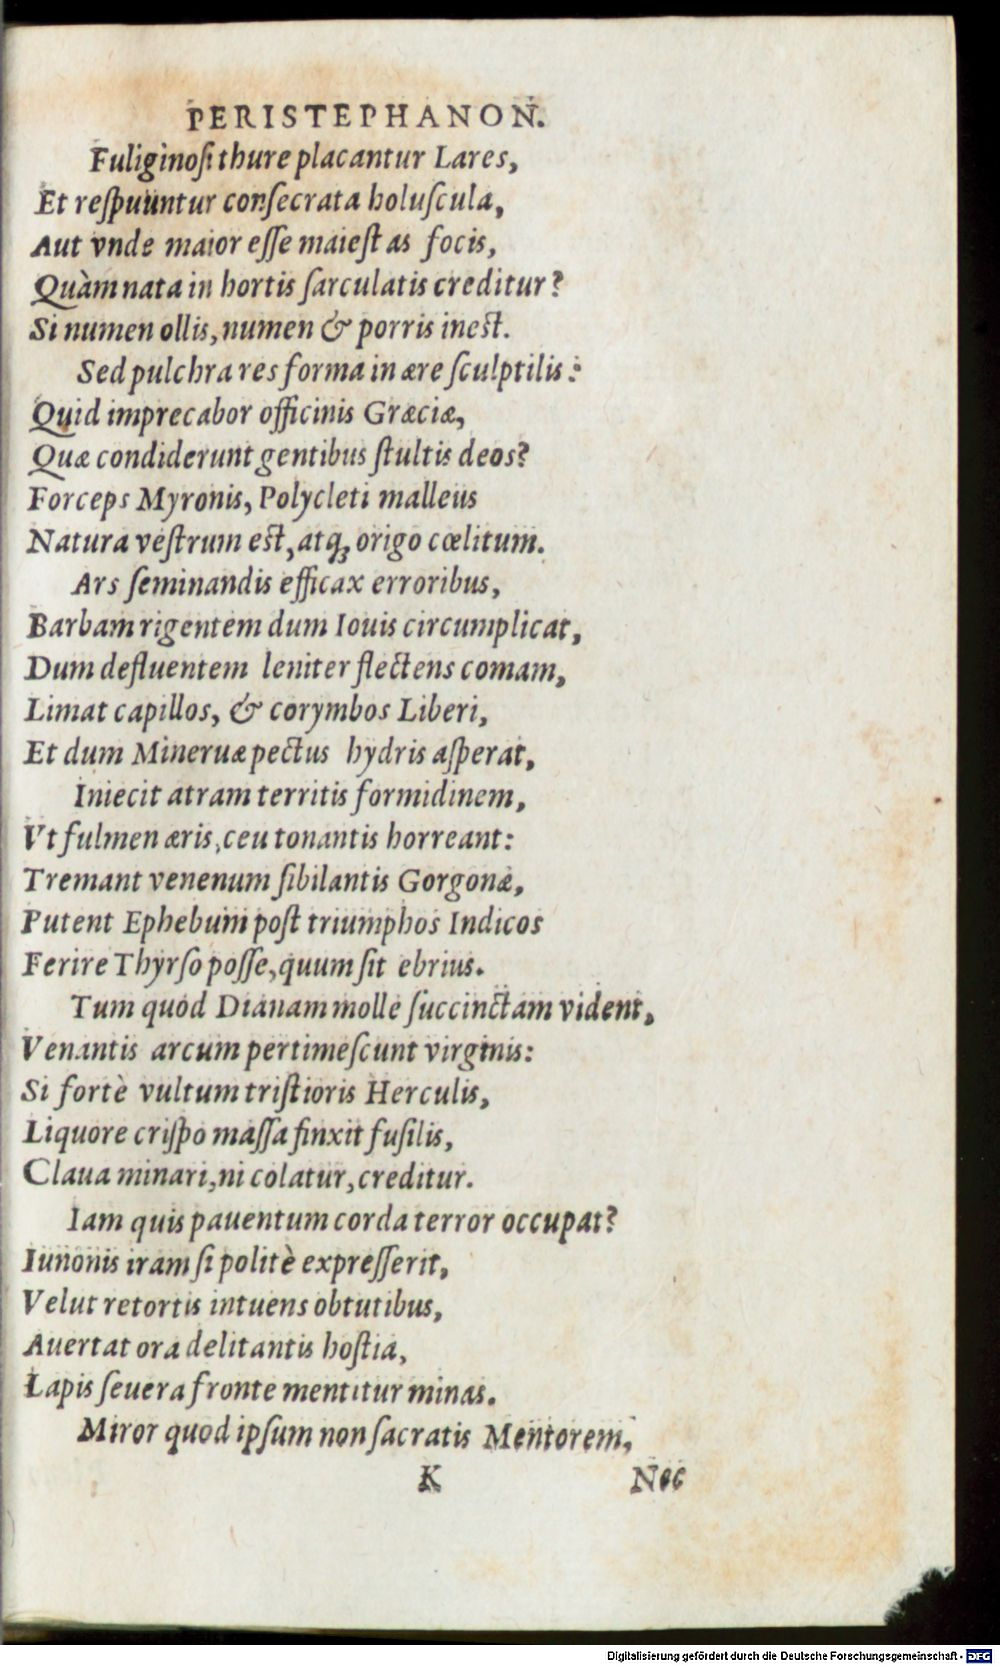 PERISTEPHANON.
Fuliginoſi thure placantur Lares,
Et reſpuuntur conſecrata holuſcula,
Aut vnde maior eſſe maieſtas focis,
Quàm nata in hortis ſarculatis creditur?
Si numen ollis, numen & porris ineſt.
Sed pulchra res forma in ære ſculptilis:
Quid imprecabor officinis Græciæ,
Quæ condiderunt gentibus ſtultis deos?
Forceps Myronis, Polycleti malleus
Natura veſtrum eſt, atq; origo cœlitum.
Ars ſeminandis efficax erroribus,
Barbam rigentem dum Iouis circumplicat,
Dum defluentem leniter flectens comam,
Limat capillos, & corymbos Liberi,
Et dum Mineruæ pectus hydris aſperat,
Iniecit atram territis formidinem,
Vt fulmen æris, ceu tonantis horreant:
Tremant venenum ſibilantis Gorgonæ,
Putent Ephebum poſt triumphos Indicos
Ferire Thyrſo poſſe, quum ſit ebrius.
Tum quòd Dianam molle ſuccinctam vident,
Venantis arcum pertimeſcunt virginis:
Si fortè vultum triſtioris Herculis,
Liquore criſpo maſſa finxit fuſilis,
Claua minari, ni colatur, creditur.
Iam quis pauentum corda terror occupat?
Iunonis iram ſi politè expreſſerit,
Velut retortis intuens obtutibus,
Auertat ora delitantis hoſtia,
Lapis ſeuera fronte mentitur minas.
Miror quod ipſum non ſacratis Mentorem,
K Nec
Digitalisierung gefördert durch die Deutsche Forschungsgemeinschaft - DFG